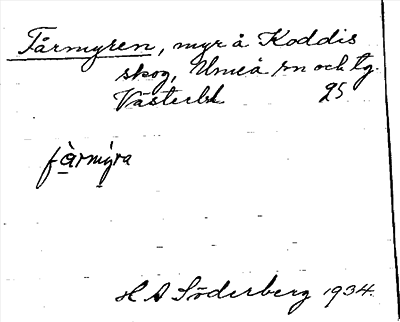 Fårmyren, myr å Koddis
skog, Umeå sn och tg.
Västerbl. 25
fàrmyra
H A Söderberg 1934.